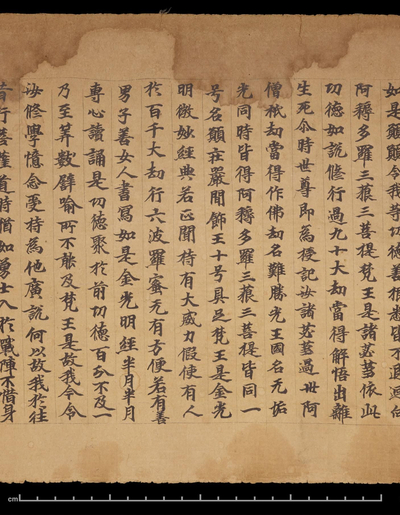 如是願願令我等功德善根悉皆不退迴向
阿耨多羅三藐三菩提梵王是諸苾芻依此
功德如說修行過九十大劫當得解悟出離
生死尒時世尊即為授記汝諸苾芻過卅阿
僧祇劫當得作佛劫名難勝光王國名无垢
光同時皆得阿耨多羅三藐三菩提皆同一
号名願莊嚴間飾王十号具足梵王是金光
明微妙經典若正聞持有大威力假使有人
於百千大劫行六波羅蜜无有方便若有善
男子善女人書寫如是金光明經半月半月
專心讀誦是功德聚於前功德百分不及一
乃至筭數譬喻所不能及梵王是故我今令
汝修學憶念受持為他廣說何以故我於往
昔行菩薩道時猶如勇士入於戰陣不惜身
cm